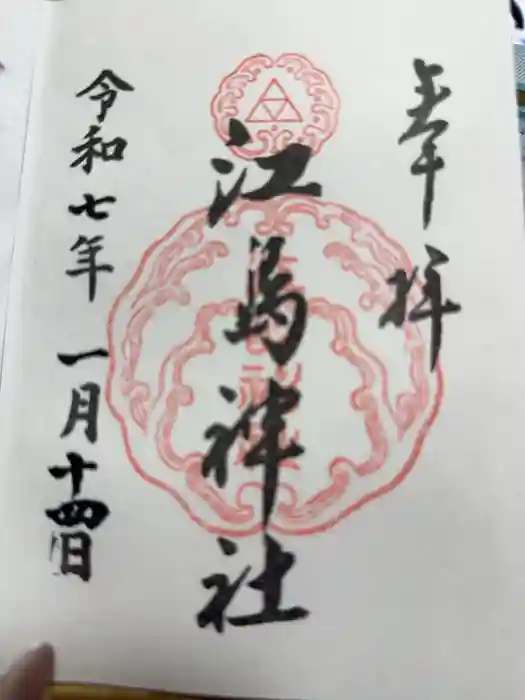 奉拝
江島神社
令和七年一月十四日